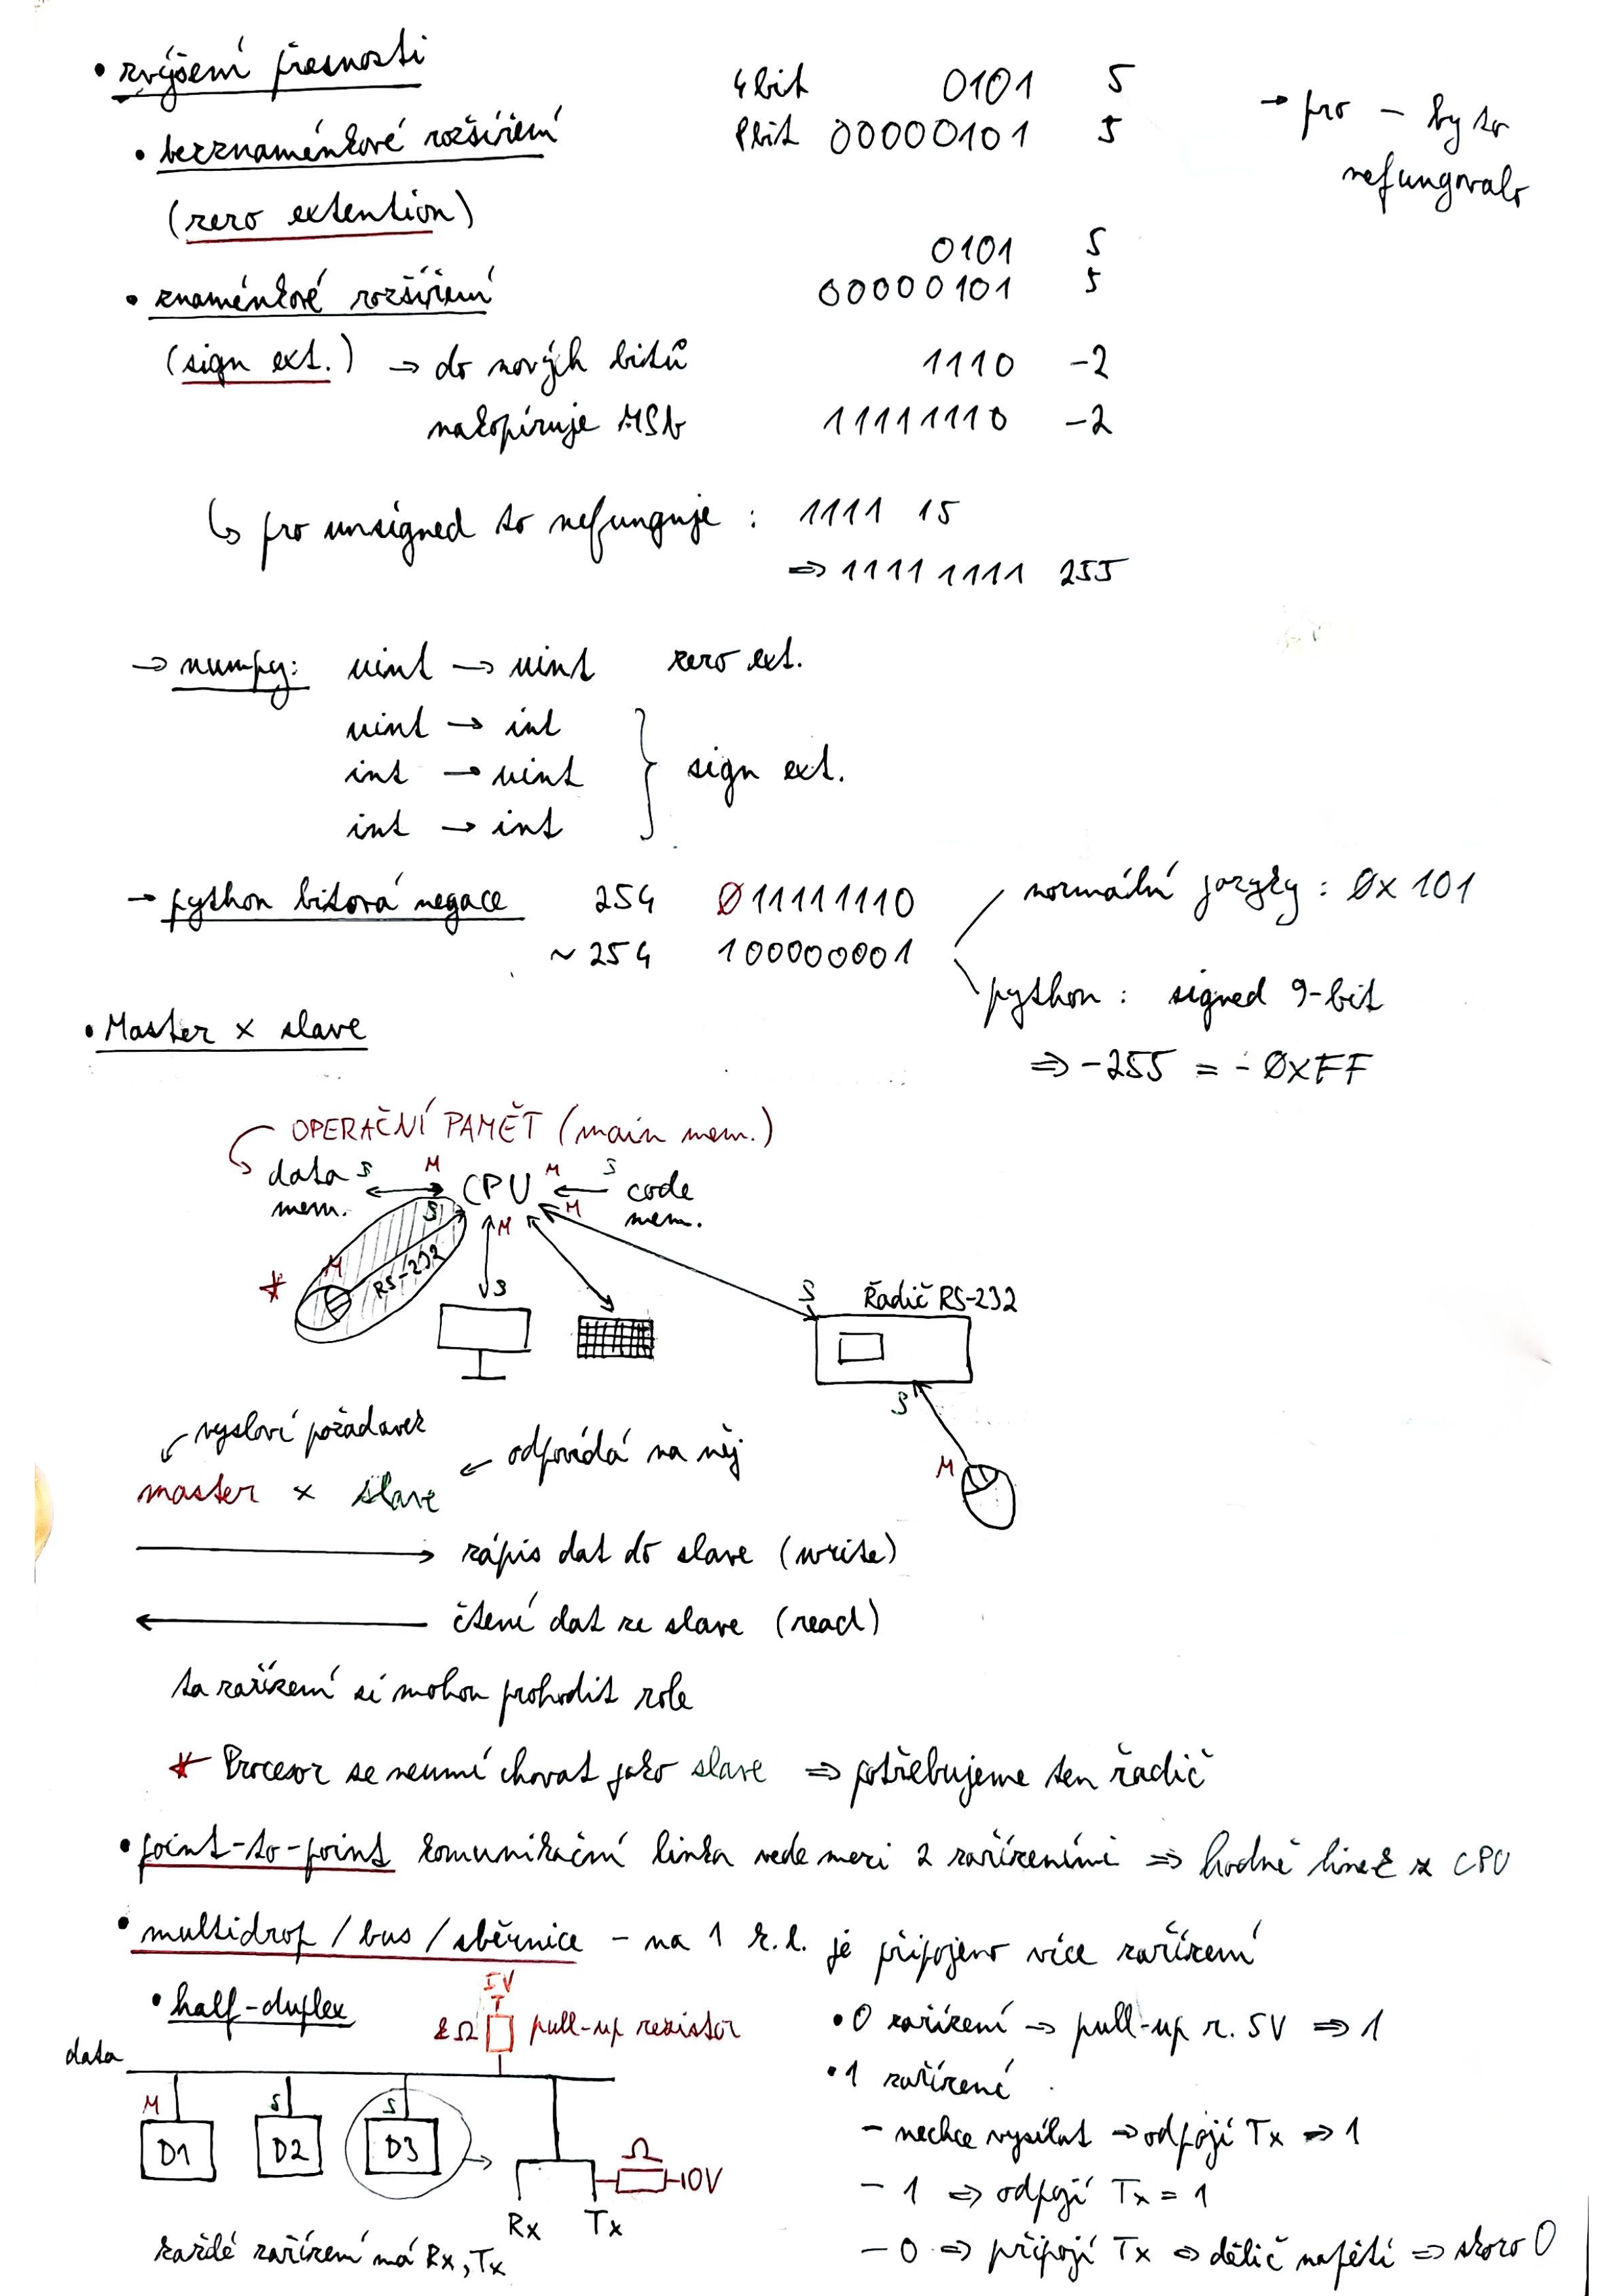 • zvýšení přesnosti
• bezznaménkové rozšíření
(zero extention)
4bit 0101 5
8bit 00000101 5
→ pro – by to
nefungovalo
• znaménkové rozšíření
(sign ext.) → do nových bitů
nakopíruje MSb
0101 5
00000101 5
1110 -2
11111110 -2
↳ pro unsigned to nefunguje : 1111 15
⇒ 1111 1111 255
→ numpy: uint → uint zero ext.
uint → int
int → uint
int → int
} sign ext.
→ python bitová negace 254 Ø11111110
~254 100000001
normální jazyky : Øx 101
python : signed 9-bit
⇒ -255 = - ØxFF
• Master x slave
OPERAČNÍ PAMĚT (main mem.)
data S M CPU M S code
mem. S M M mem.
M RS-232
*
S
S Řadič RS-232
S
M
vysloví požadavek
odpovídá na něj
master x slave
→ zápis dat do slave (write)
← čtení dat ze slave (read)
ta zařízení si mohou prohodit role
* Procesor se neumí chovat jako slave ⇒ potřebujeme ten řadič
• point-to-point komunikační linka vede mezi 2 zařízeními ⇒ hodně linek z CPU
• multidrop / bus / sběrnice – na 1 k.l. je připojeno více zařízení
• half-duplex
5V
kΩ pull-up rezistor
data
M S S
D1 D2 D3
Ω
0V
Rx Tx
každé zařízení má Rx, Tx
• 0 zařízení → pull-up r. 5V ⇒ 1
• 1 zařízení
– nechce vysílat ⇒ odpojí Tx ⇒ 1
– 1 ⇒ odpojí Tx = 1
– 0 ⇒ připojí Tx ⇒ dělič napětí ⇒ skoro 0